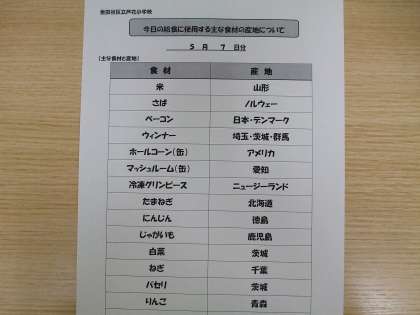 世田谷区立芦花小学校
今日の給食に使用する主な食材の産地について
5 月 7 日分
【主な食材と産地】
食 材 産 地
米 山形
さば ノルウェー
ベーコン 日本・デンマーク
ウィンナー 埼玉・茨城・群馬
ホールコーン(缶) アメリカ
マッシュルーム(缶) 愛知
冷凍グリンピース ニュージーランド
たまねぎ 北海道
にんじん 徳島
じゃがいも 鹿児島
白菜 茨城
ねぎ 千葉
パセリ 茨城
りんご 青森